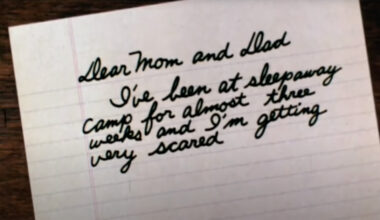 Dear Mom and Dad
I've been at sleepaway
camp for almost three
weeks and I'm getting
very scared